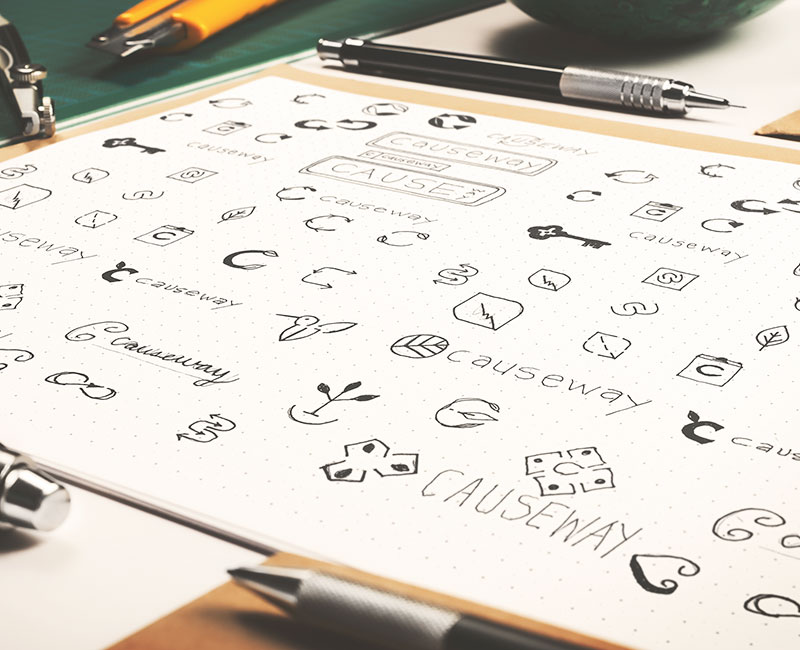 causeway
causeway
causeway
causeway
CAUSEWAY
causeway
causeway
causeway
causeway
C
causeway
causeway
C
causeway
C
caus
CAUSEWAY